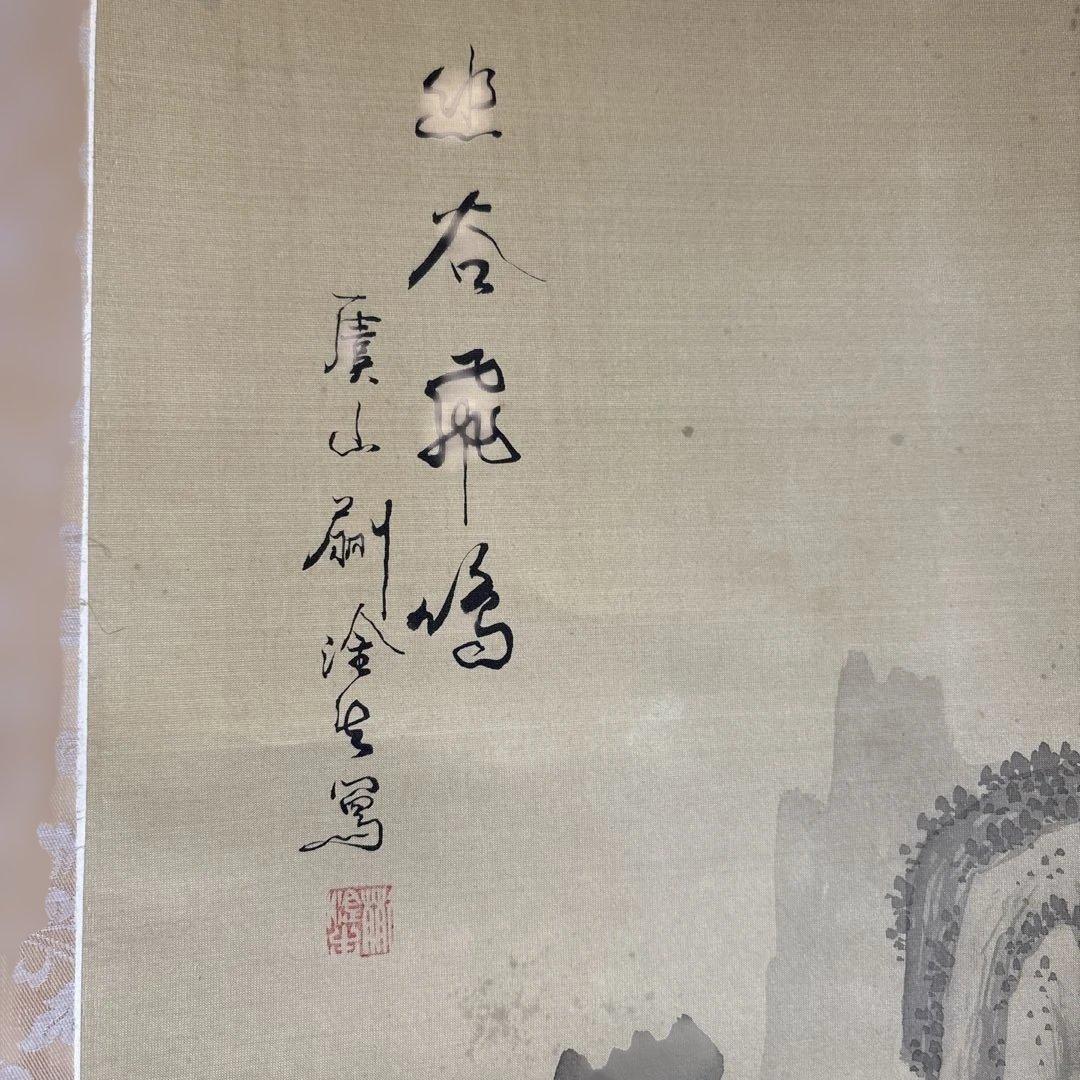 幽谷飛鳴
虞山蒯淦寫